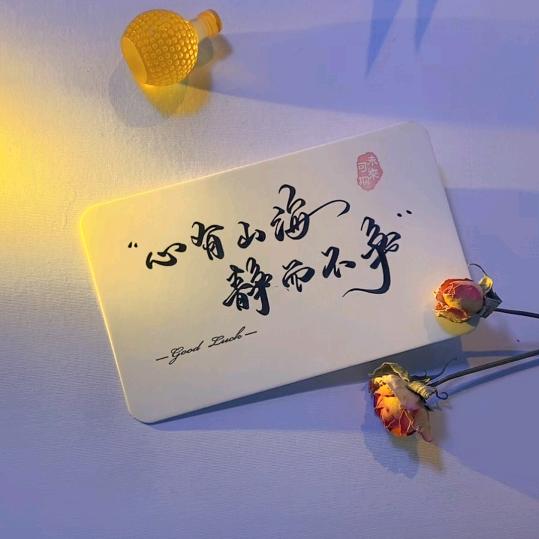 未来
可期
“心有山海
静而不争”
—Good Luck—